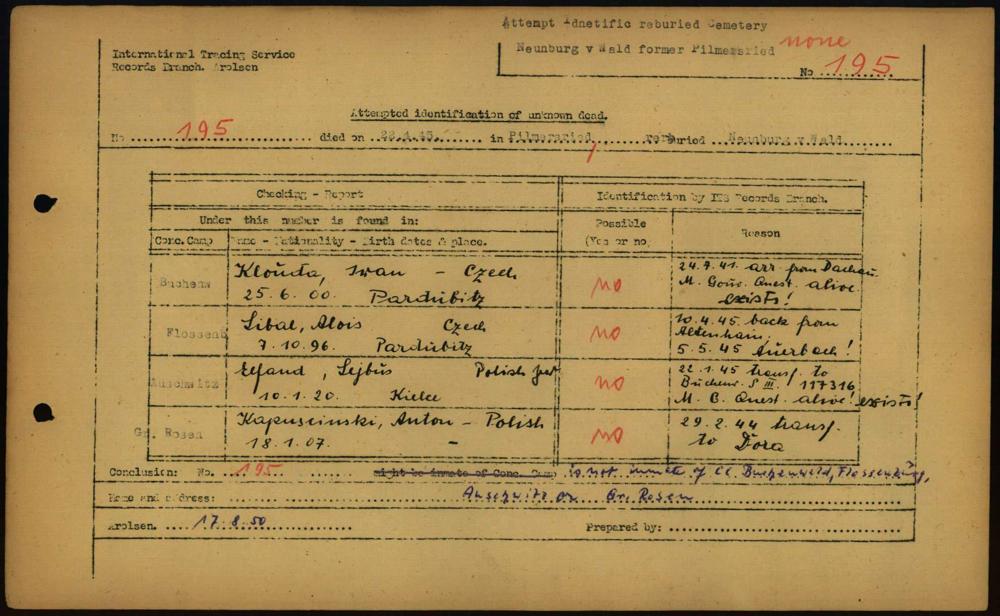 Attempt idnetific reburied Cemetery
Neunburg v Wald former Pilmersried
none
International Tracing Service
Records Branch. Arolsen
No ........195
Attempted identification of unknown dead.
No ......195...... died on 22.4.45. in Pilmersried, reburied ...Neunburg v Wald...
Checking - Report
Identification by ITS Records Branch.
Under this number is found in:
Possible (Yes or no)
Reason
Conc. Camp
Name - Nationality - Birth dates & place.
Buchenw
Klouda, Iwan - Czech
25.6.00. Pardubitz
no
24.7.41. arr. from Dachau.
M. Gouv. Quest. alive.
exists!
Flossenb
Libal, Alois Czech
7.10.96. Pardubitz
no
10.4.45. back from
Altenhain,
5.5.45 Auerbach!
Auschwitz
Elfand, Lejbus Polish jew
10.1.20. Kielce
no
22.1.45 transf. to
Buchenw. 117316
M. G. Quest. alive! exists!
Gr. Rosen
Kapuscinski, Anton - Polish
18.1.07. -
no
29.2.44 transf.
to Dora
Conclusion: No. ..195... might be inmate of Conc. Camp is not inmate of CC. Buchenwald, Flossenbürg,
Name and address: Auschwitz or Gr. Rosen
Arolsen. ...17.8.50 Prepared by: ........